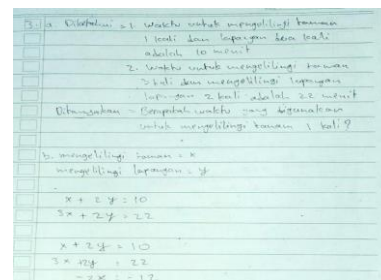 3. a. Diketahui = 1. Waktu untuk mengelilingi taman
1 kali dan lapangan dua kali
adalah 10 menit
2. Waktu untuk mengelilingi taman
3 kali dan mengelilingi lapangan
lapangan 2 kali adalah 22 menit
Ditanyakan = Berapakah waktu yang digunakan
untuk mengelilingi taman 1 kali?
b. mengelilingi taman = x
mengelilingi lapangan = y
x + 2y = 10
3x + 2y = 22
x + 2y = 10
3x + 2y = 22
-2x = -12